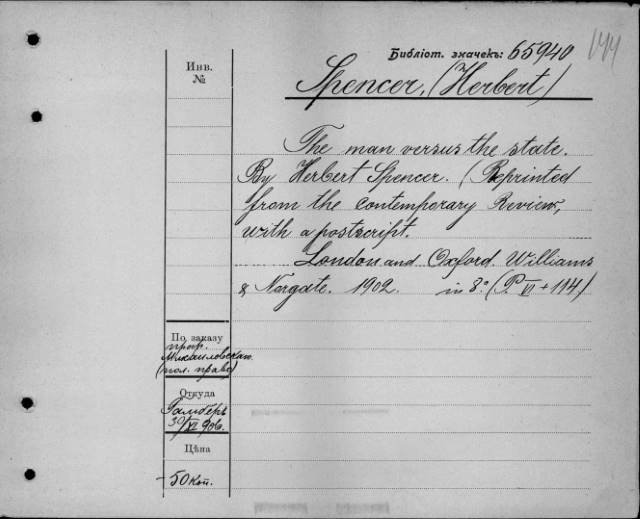 Библіот. значекъ: 65940
144
Инв.
№
Spencer, (Herbert)
The man versus the state.
By Herbert Spencer. (Reprinted
from the contemporary Review,
with a postscript.
London and Oxford. Williams
& Norgate. 1902. in 8° (P. VI + 114)
По заказу
проф.
Михаиловскаго
(пол. право)
Откуда
30/XI 906.
Цѣна
- 50 коп.